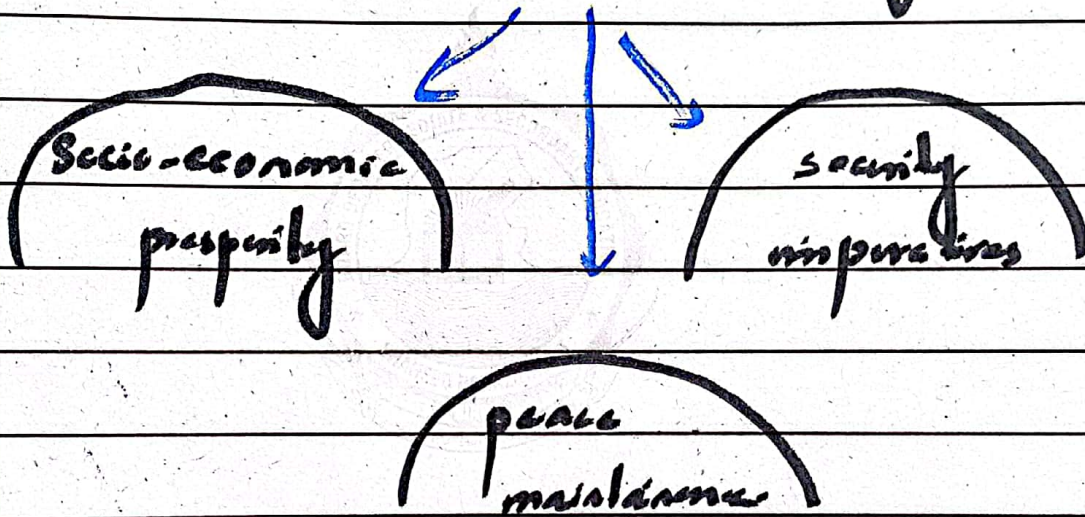 Socio-economic
prosperity
security
imperatives
peace
maintainence